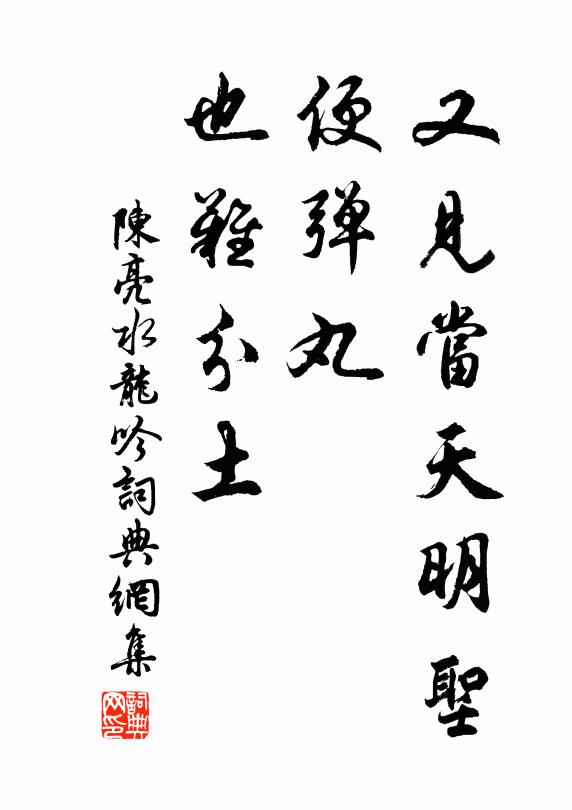 又見當天明聖
便弹丸
也難分土
陳亮水龍吟詞典網集
詞典网印